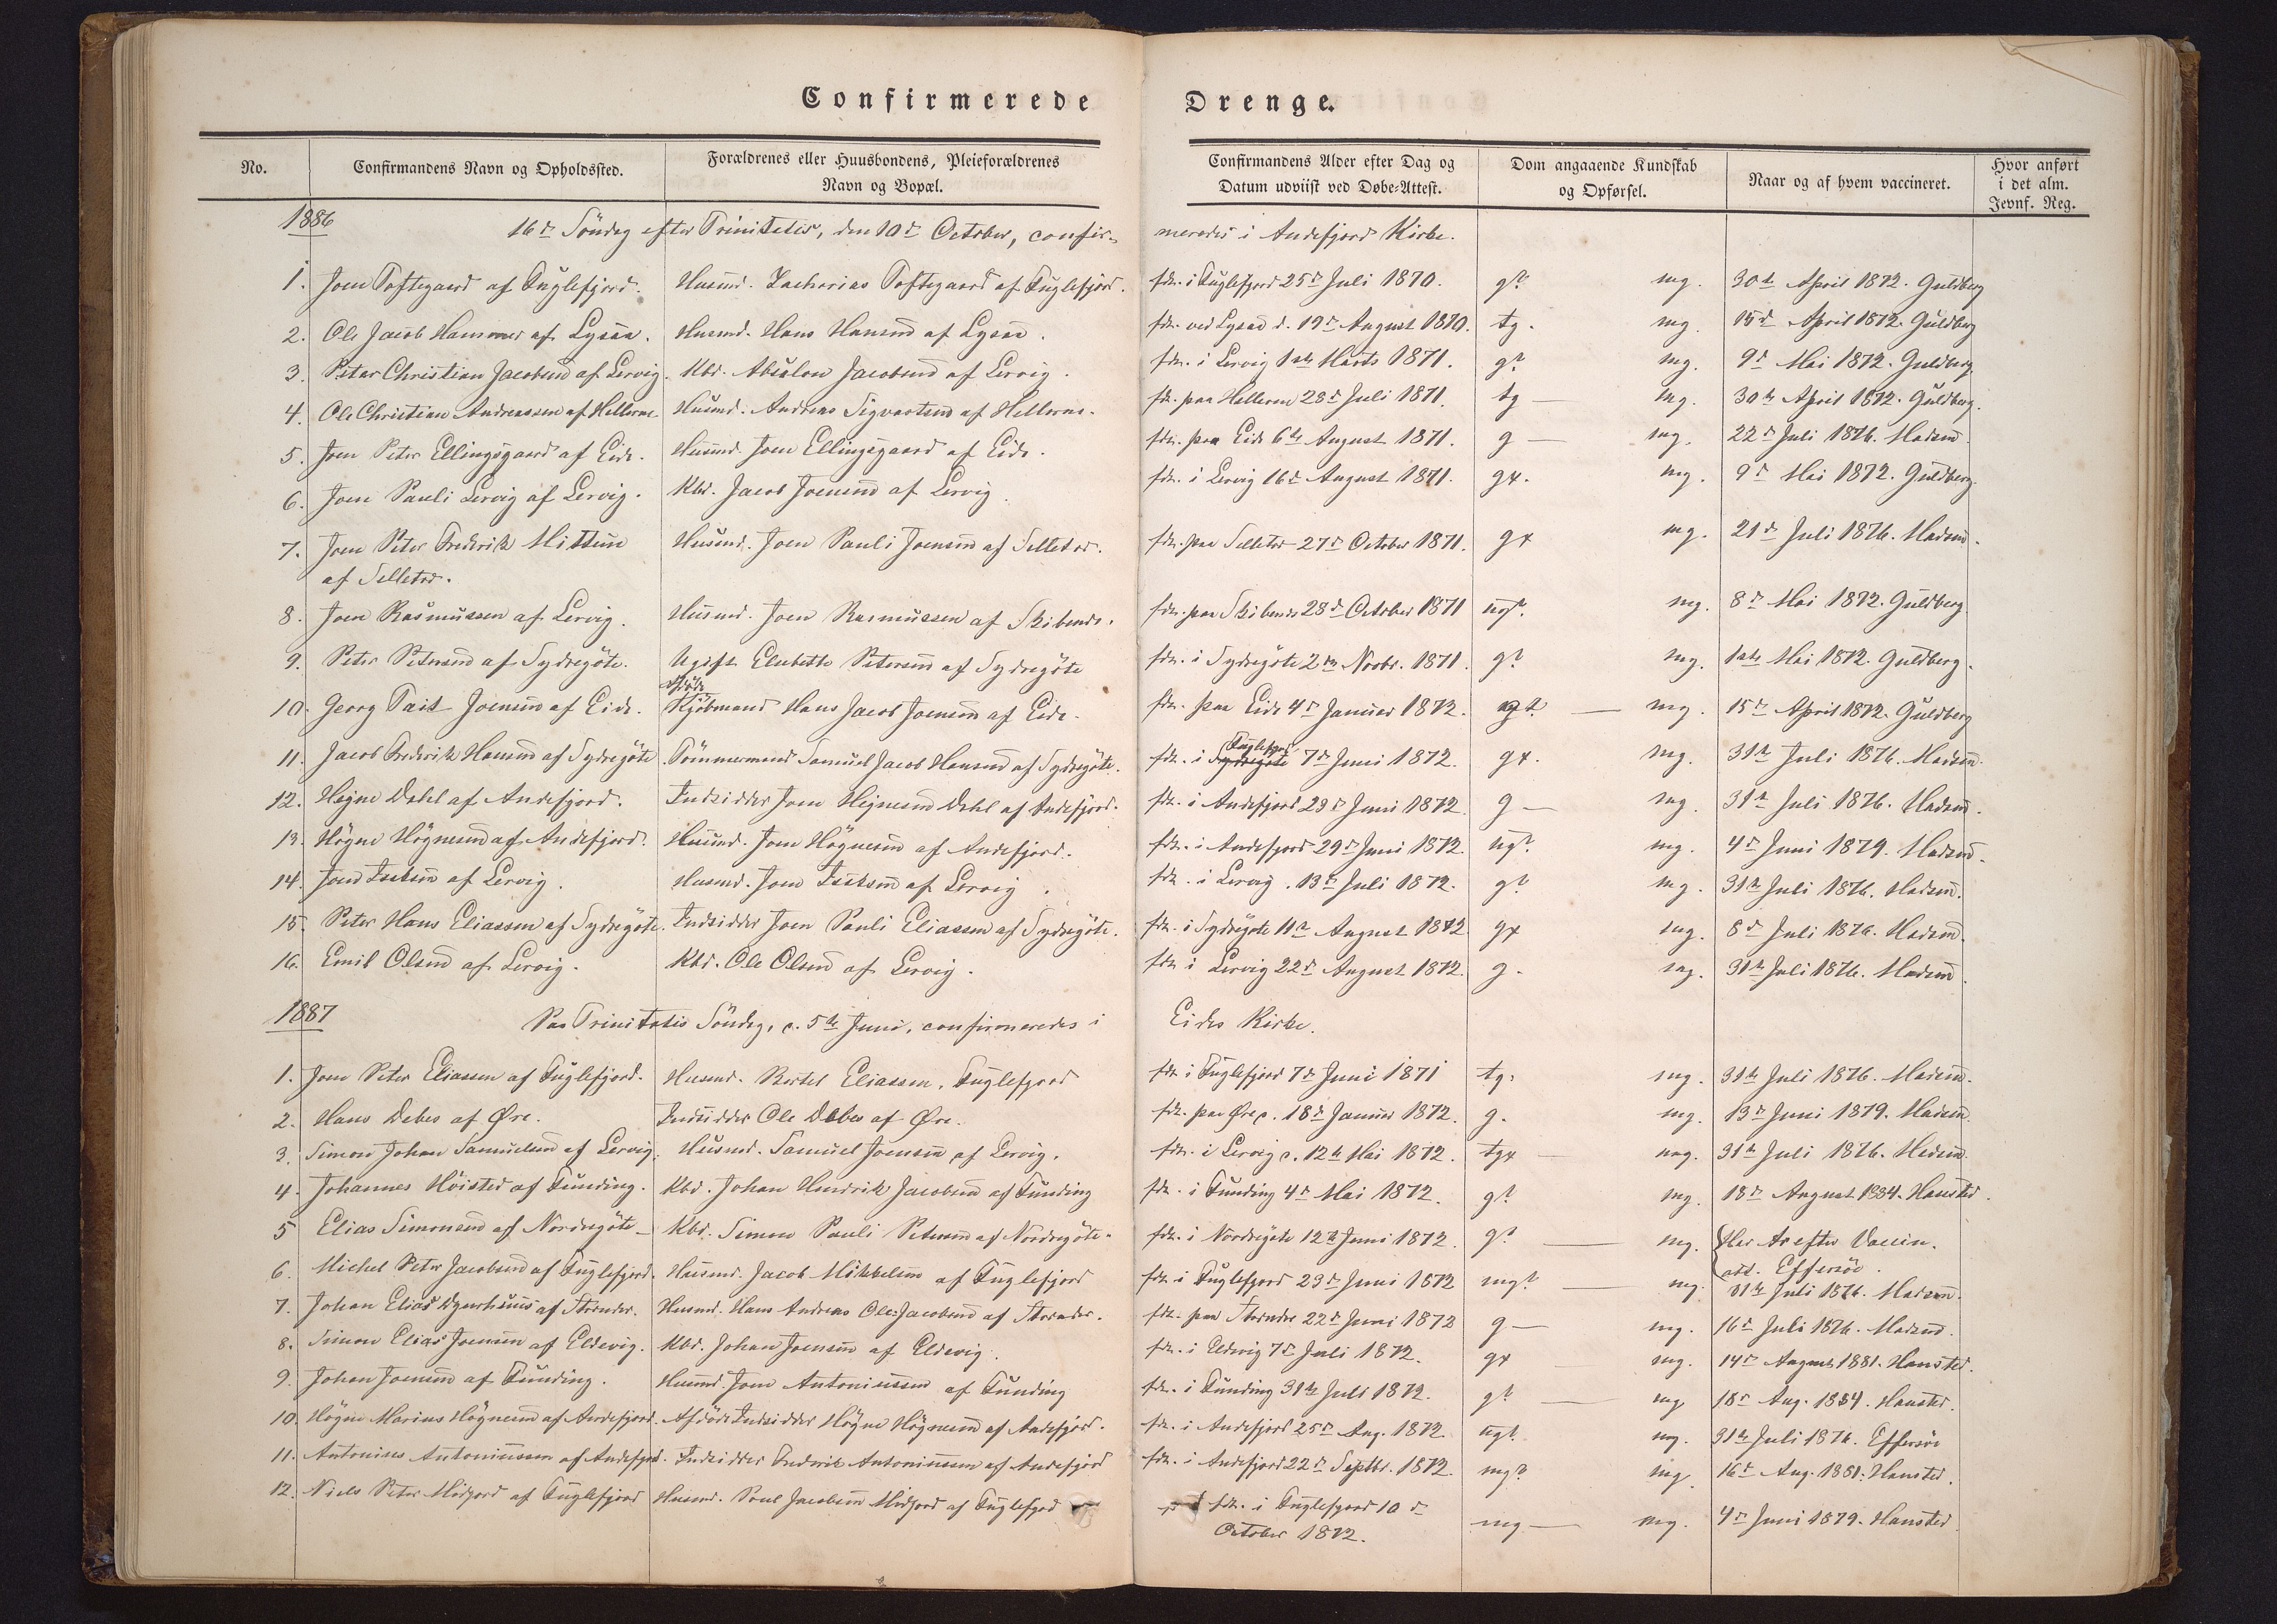 Confirmerede Drenge.
No. Confirmandens Navn og Opholdssted. Forældrenes eller Huusbondens, Pleieforældrenes Navn og Bopæl. Confirmandens Alder efter Dag og Datum udviist ved Døbe-Attest. Dom angaaende Kundskab og Opførsel. Naar og af hvem vaccineret. Hvor anført i det alm. Jevnf. Reg.
1886 16de Söndag efter Trinitatis, den 10de October, confirmeredes i Andefjord Kirke.
1. Joen Toftegaard af Fuglefjord. Husmd. Zacharias Toftegaard af Fuglefjord. fdt. i Fuglefjord 25de Juli 1870. gt. mg. 30te April 1872. Guldberg
2. Ole Jacob Hammer af Lysaa. Husmd. Hans Hansen af Lysaa. fdt. ved Lysaa d. 19de August 1870. tg. mg. 15de April 1872. Guldberg
3. Peter Christian Jacobsen af Lervig. Kbd. Absalon Jacobsen af Lervig. fdt. i Lervig 1ste Marts 1871. gt. mg. 9de Mai 1872. Guldberg
4. Ole Christian Andreassen af Hellerne. Husmd. Andreas Sigvartsen af Hellerne. fdt. paa Hellerne 28de Juli 1871. tg — mg. 30te April 1872. Guldberg.
5. Joen Peter Ellingsgaard af Eide. Husmd. Joen Ellingsgaard af Eide. fdt. paa Eide 6te August 1871. g — mg. 22de Juli 1876. Madsen
6. Joen Pauli Lervig af Lervig. Kbd. Jacob Joensen af Lervig. fdt. i Lervig 16de August 1871. gx. mg. 9de Mai 1872. Guldberg.
7. Joen Peter Frederik Mittun af Selletræ. Husmd. Joen Pauli Joensen af Selletræ. fdt. paa Selletræ 27de October 1871. gx mg. 21de Juli 1876. Madsen.
8. Joen Rasmussen af Lervig. Husmd. Joen Rasmussen af Skibenæs. fdt. paa Skibenæs 28de October 1871 ugt. mg. 8de Mai 1872. Guldberg.
9. Peter Petersen af Sydregöte. Ugift Elsebette Petersen af Sydregöte fdt. i Sydregöte 2den Novbr. 1871. gt. mg. 1ste Mai 1872. Guldberg.
10. Georg Tait Joensen af Eide. afdöde Kjöbmand Hans Jacob Joensen af Eide. fdt. paa Eide 4de Januar 1872. gt. — mg. 15de April 1872. Guldberg
11. Jacob Frederik Hansen af Sydregöte Tömmermand Samuel Jacob Hansen af Sydregöte. fdt. i Sydregöte Fuglefjord 7de Juni 1872. gx. mg. 31te Juli 1876. Madsen.
12. Högne Dahl af Andefjord. Indsidder Joen Högnesen Dahl af Andefjord. fdt. i Andefjord 23de Juni 1872. g — mg. 31te Juli 1876. Madsen.
13. Högne Högnesen af Andefjord. Husmd. Joen Högnesen af Andefjord. fdt. i Andefjord 29de Juni 1872. ugt. mg. 4de Juni 1879. Madsen.
14. Joen Isaksen af Lervig. Husmd. Joen Isaksen af Lervig. fdt. i Lervig. 13de Juli 1872. gt. mg. 31te Juli 1876. Madsen.
15. Peter Hans Eliassen af Sydregöte. Indsidder Joen Pauli Eliassen af Sydregöte. fdt. i Sydregöte 11te August 1872 gx mg. 8de Juli 1876. Madsen.
16. Emil Olsen af Lervig. Kbd. Ole Olsen af Lervig. fdt. i Lervig 22de August 1872. g. mg. 31te Juli 1876. Madsen.
1887 Paa Trinitatis Söndag, d. 5te Juni, confirmeredes i Eides Kirke.
1. Joen Peter Eliassen af Fuglefjord. Husmd. Bertel Eliassen, Fuglefjord fdt. i Fuglefjord 7de Juni 1871 tg. mg. 31te Juli 1876. Madsen.
2. Hans Debes af Øre. Indsidder Ole Debes af Øre. fdt. paa Øre d. 18de Januar 1872. g. mg. 13de Juni 1879. Madsen
3. Simon Johan Samuelsen af Lervig. Husmd. Samuel Joensen af Lervig. fdt. i Lervig d. 12te Mai 1872. tgx — mg. 31te Juli 1876. Madsen
4. Johannes Höisted af Funding. Kbd. Johan Hendrik Jacobsen af Funding fdt. i Funding 4de Mai 1872. gt. mg. 18de August 1884. Hansted.
5 Elias Simonsen af Nordregöte — Kbd. Simon Pauli Petersen af Nordregöte. fdt. i Nordregöte 12te Juni 1872. gt. — mg. Har Ar efter Vaccin. att. Effersöe.
6. Michel Peter Jacobsen af Fuglefjord. Husmd. Jacob Mikkelsen af Fuglefjord fdt. i Fuglefjord 23de Juni 1872 mgt. — mg. 31te Juli 1876. Madsen.
7. Johan Elias Dyurhuus af Strender. Husmd. Hans Andreas Ole Jacobsen af Strender. fdt. paa Strender 22de Juni 1872 g — mg. 16de Juli 1876. Madsen.
8. Simon Elias Joensen af Eldevig. Kbd. Johan Joensen af Eldevig. fdt. i Eldevig 7de Juli 1872. gx mg. 14de August 1881. Hansted.
9. Johan Joensen af Funding. Husmd. Joen Antoniussen af Funding fdt. i Funding 31te Juli 1872. gt. — mg 18de Aug. 1884. Hansted.
10. Högne Marius Högnesen af Andefjord. Afdöde Indsidder Högne Högnesen af Andefjord. fdt. i Andefjord 25de Aug. 1872. ugt. mg. 31te Juli 1876. Effersöe
11. Antonius Antoniussen af Andefjord. Indsidder Frederik Antoniussen af Andefjord fdt. i Andefjord 22de Septbr. 1872. mgt. mg. 16de Aug. 1881. Hansted.
12. Niels Peter Midjord af Fuglefjord Husmd. Poul Jacobsen Midjord af Fuglefjord fdt. i Fuglefjord 10de October 1872. mg — mg. 4de Juni 1879. Hansted